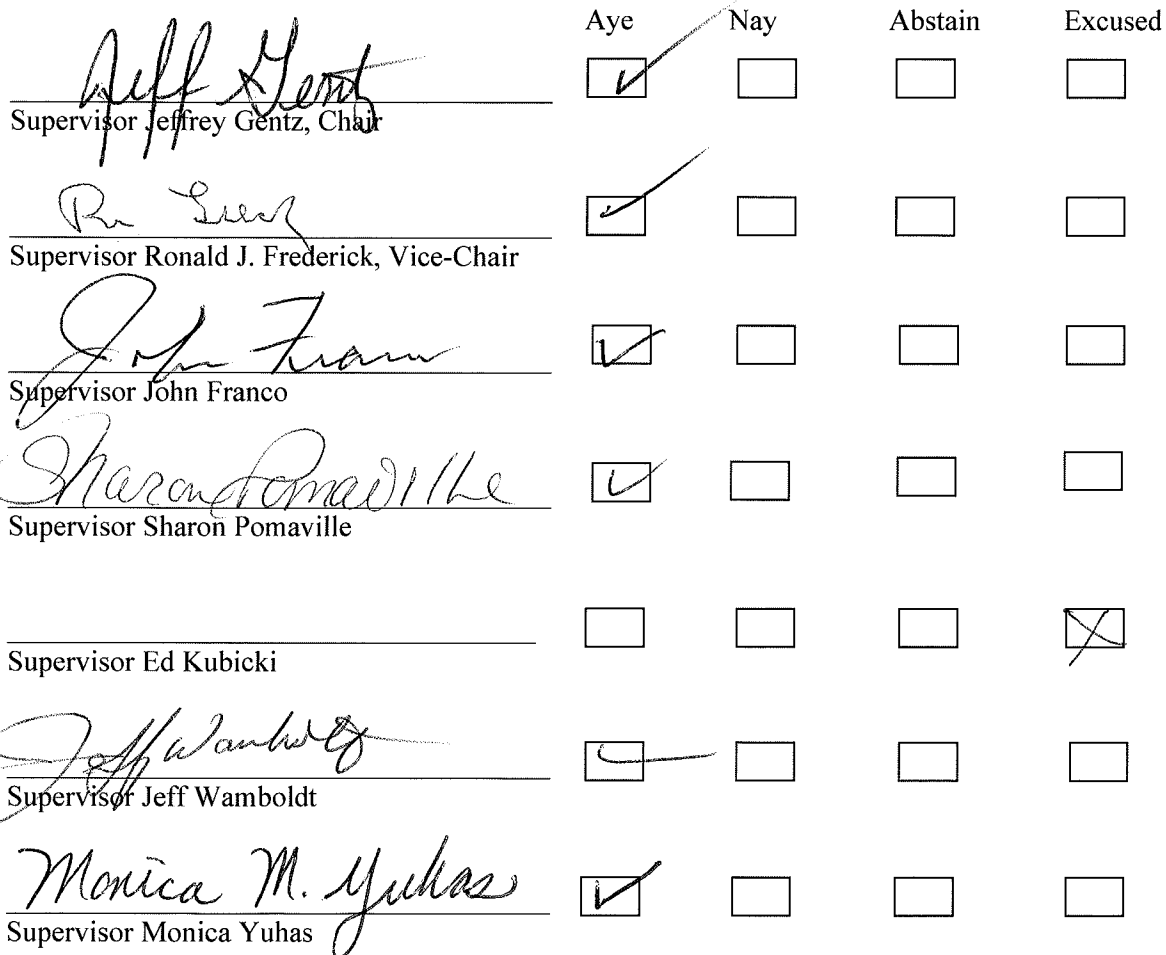 Aye Nay Abstain Excused
Jeff Gentz
Supervisor Jeffrey Gentz, Chair
Supervisor Ronald J. Frederick, Vice-Chair
John Franco
Supervisor John Franco
Sharon Pomaville
Supervisor Sharon Pomaville
Supervisor Ed Kubicki
Jeff Wamboldt
Supervisor Jeff Wamboldt
Monica M. Yuhas
Supervisor Monica Yuhas